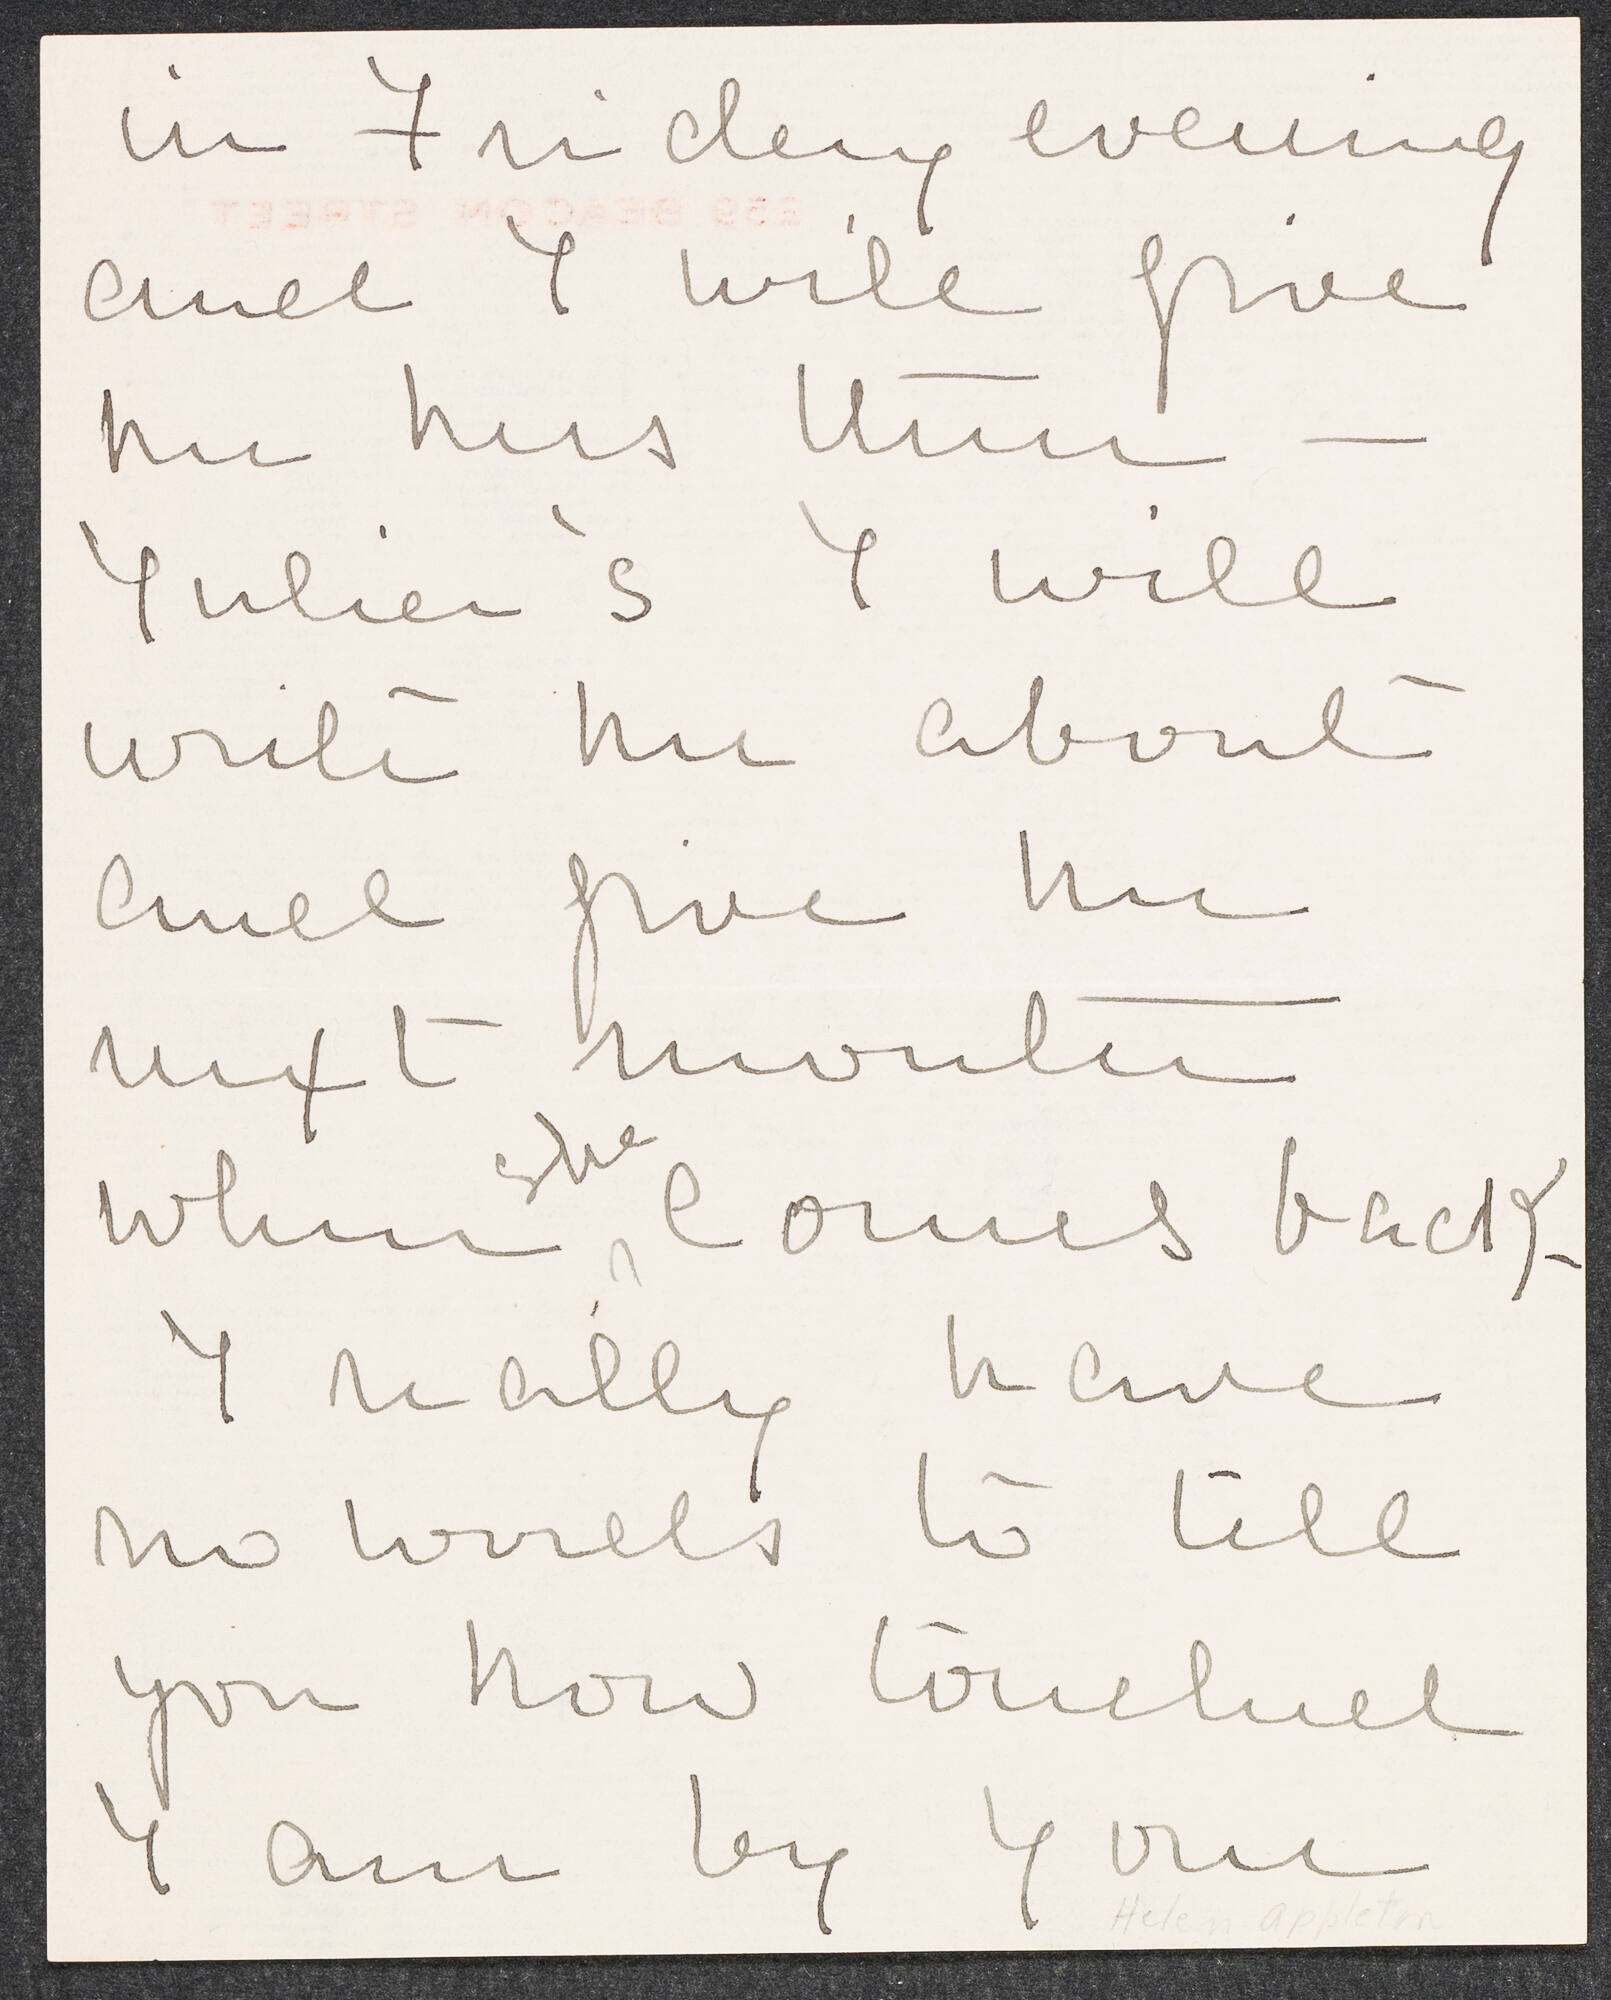 in Friday evening
and I will give
her hers then —
Julia's I will
write her about
and give her
next month
when she comes back -
I really have
no words to tell
you how touched
I am by your
Helen Appleton